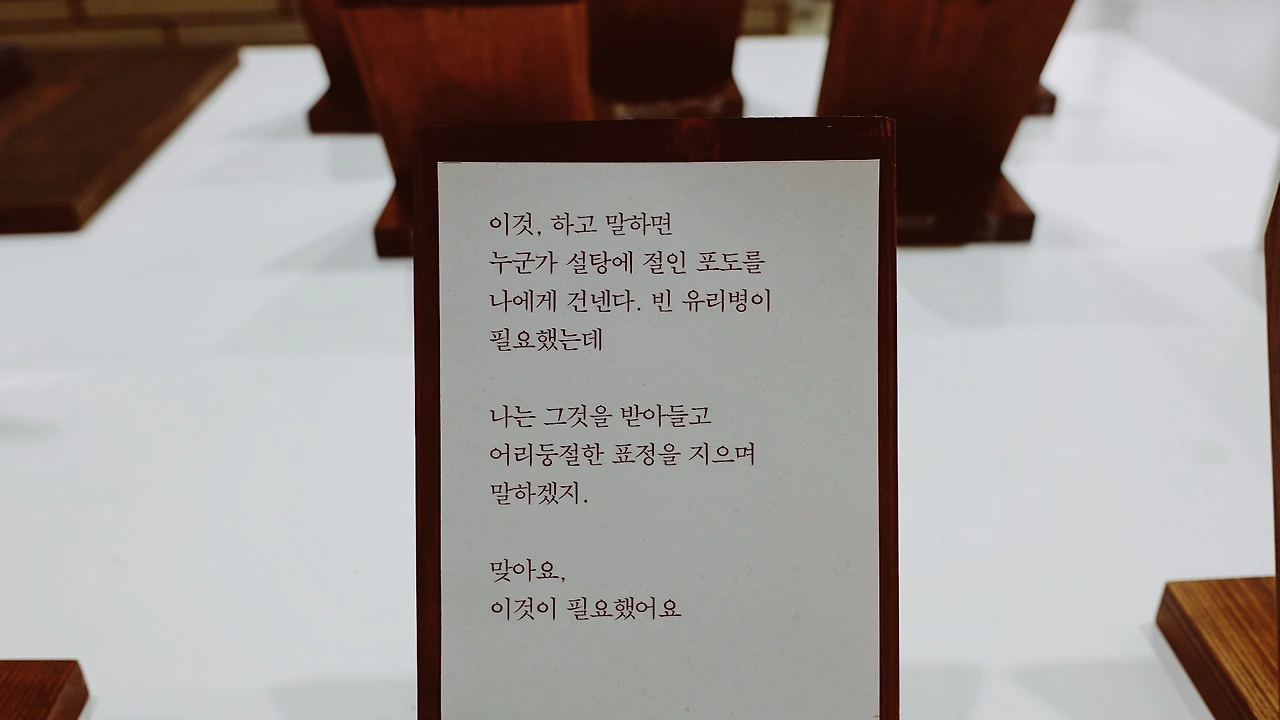 이것, 하고 말하면
누군가 설탕에 절인 포도를
나에게 건넨다. 빈 유리병이
필요했는데
나는 그것을 받아들고
어리둥절한 표정을 지으며
말하겠지.
맞아요,
이것이 필요했어요